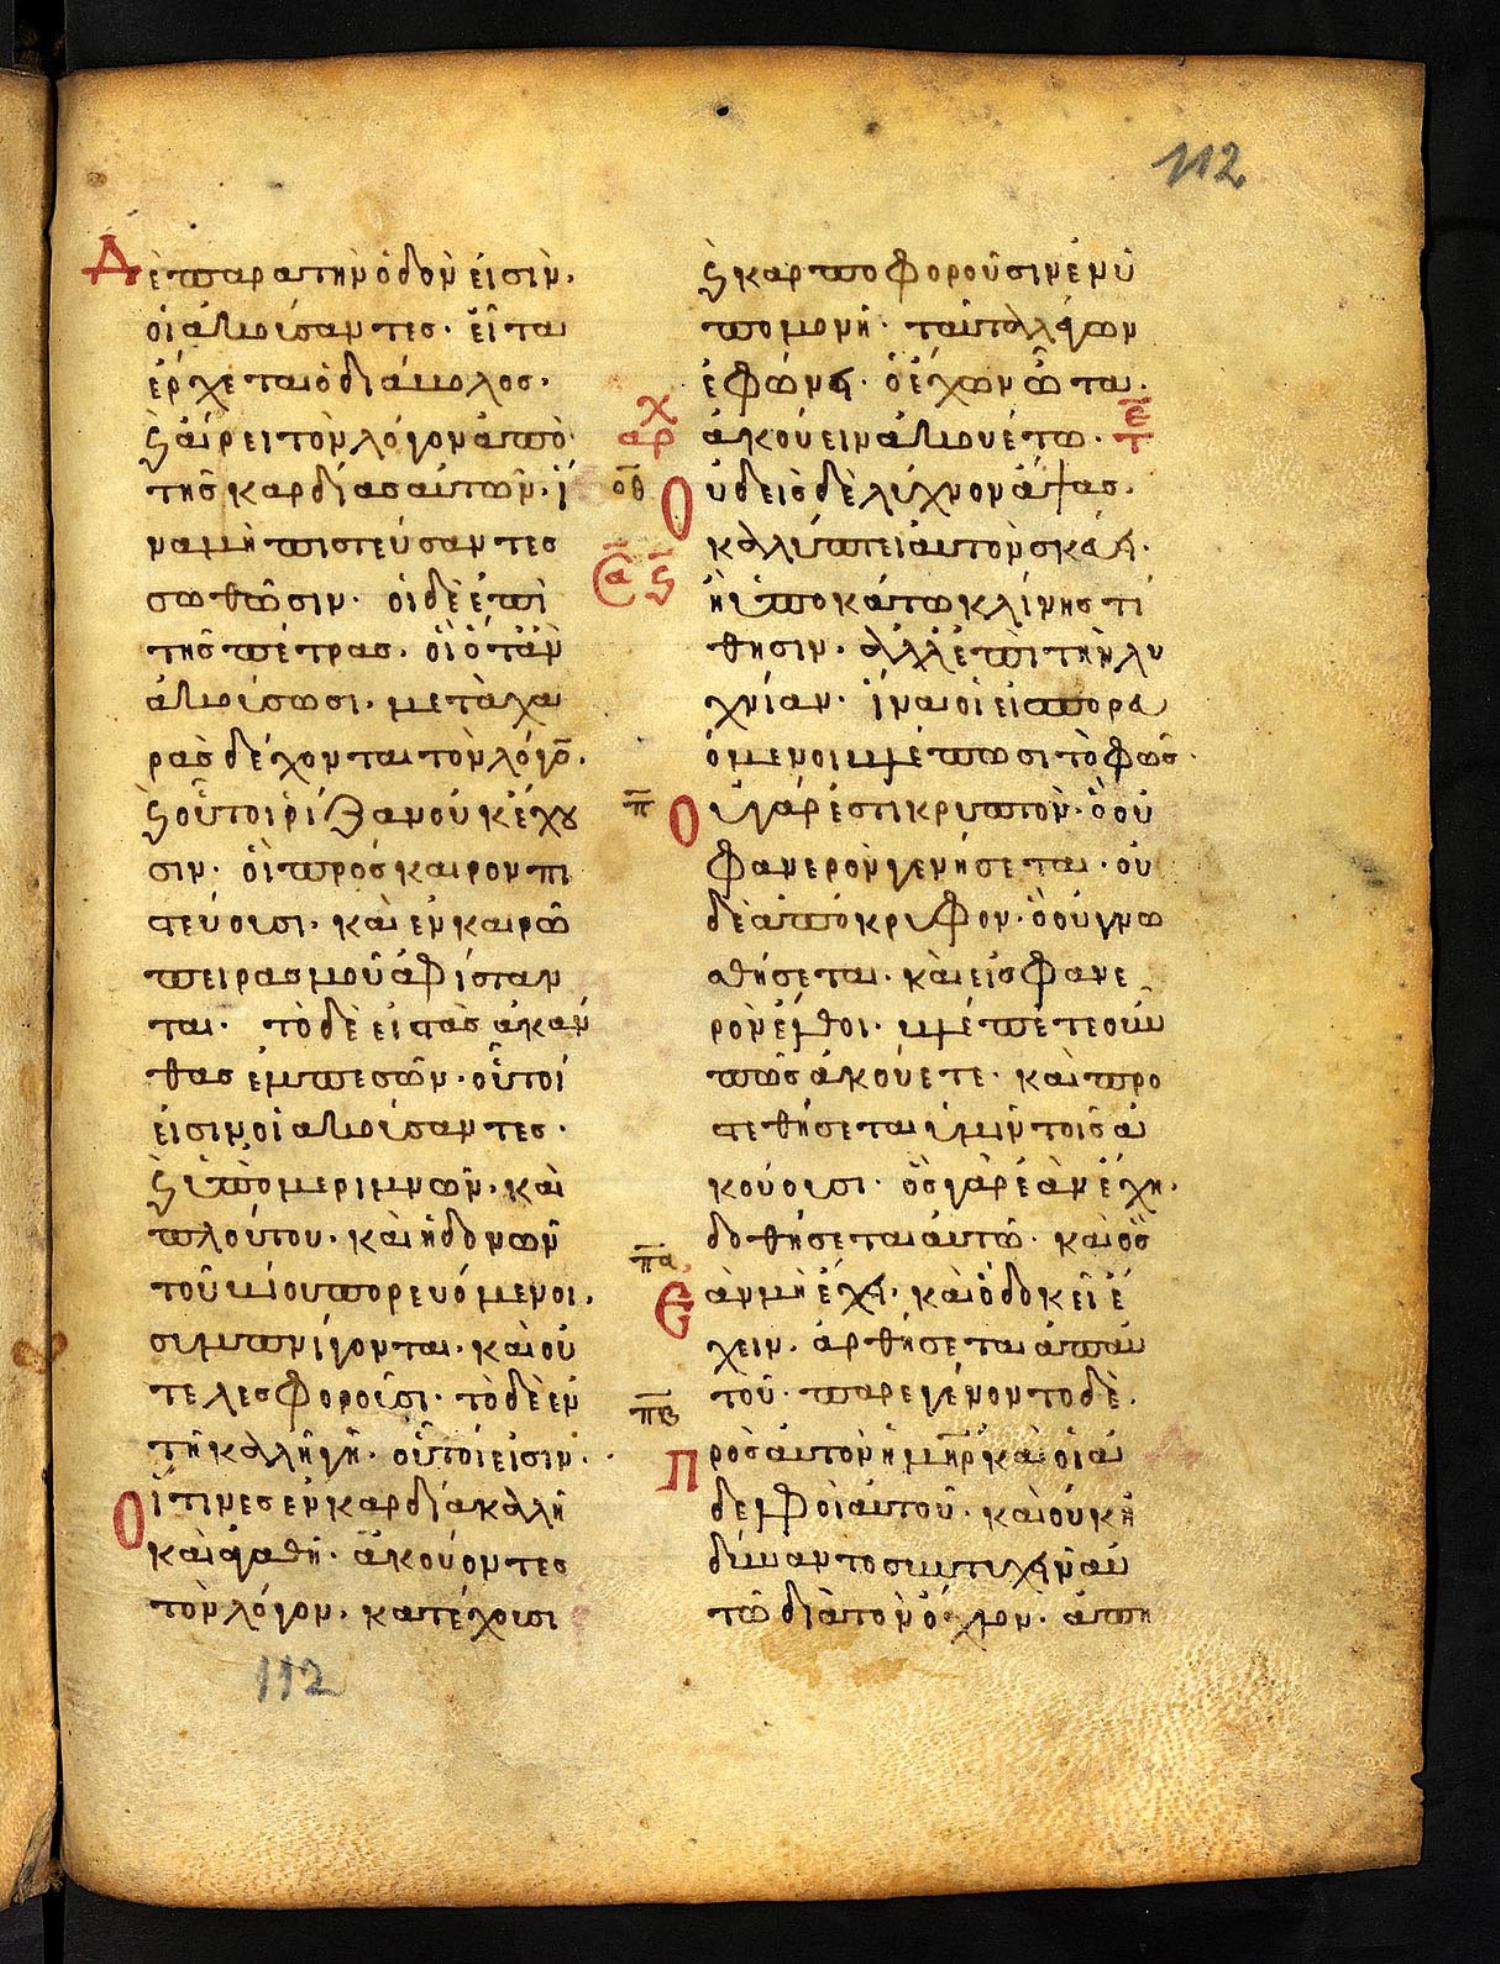 112
Δὲ παρα την ὁδὸν εἰσὶν·
οἱ ἀκούσαντες· εἶται
ἔρχεται ὁ διάβολος·
ϗ αἴρει τὸν λόγον ἀπὸ
τῆς καρδίας αὐτῶν· ἵ
να μὴ πιστεύσαντες
σωθῶσιν· οἱ δὲ ἐπὶ
τῆς πέτρας· οἳ ὅταν
ἀκούσωσι· μετὰ χα
ρᾶς δέχονται τὸν λόγο̅·
ϗ οὗτοι ρίζαν οὐκ ἔχου
σιν· οἳ πρὸς καιρον πι
στεύουσι· καὶ ἐν καιρῶ
πειρασμοῦ ἀφίσταν
ται· τὸ δὲ εἰς τὰς ἀκάν
θας ἐμπεσῶν· οὗτοί
εἰσιν οἱ ἀκούσαντες·
ϗ ὑπὸ μεριμνῶν· καὶ
πλούτου· καὶ ἡδονῶν
τοῦ βίου πορευόμενοι·
συμπνίγονται· καὶ οὐ
τελεσφοροῦσι· τὸ δὲ ἐν
τῆ καλῆ γῆ· οὗτοί εἰσιν·
Οἵτινες ἐν καρδία καλῆ
καὶ ἀγαθῆ· ἀκούοντες
τὸν λόγον· κατέχουσι
112
ϗ καρποφοροῦσιν ἐν ὑ
πομονῆ· ταῦτα λέγων
ἐφώνει· ὁ ἔχων ὦτα·
χ
αρ
ἀκούειν ἀκουέτω·
ε̅
τ
ο̅θ
Οὐδεὶς δὲ λύχνον ἅψας·
καλύπτει αὐτὸν σκεύει·
α̅ ϛ̅
ἢ ὑποκάτω κλίνης τί
θησιν· ἀλλ' ἐπὶ τὴν λυ
χνίαν· ἵνα οἱ εἰσπορευ
όμενοι βλέπωσι τὸ φῶς·
π̅
Οὐ γάρ ἐστι κρυπτὸν· ὃ οὐ
φανερὸν γενήσεται· οὐ
δὲ ἀπόκρυφον· ὃ οὐ γνω
σθήσεται· καὶ εἰς φανε
ρὸν ἔλθοι· βλέπετε οὖν
πῶς ἀκούετε· καὶ προ
στεθήσεται ὑμῖν τοῖς ἀ
κούουσι· ὃς γὰρ ἐὰν ἔχη·
δοθήσεται αὐτῶ· καὶ ὃς
π̅α
Ἐὰν μὴ ἔχει· καὶ ὃ δοκεῖ ἔ
χειν· ἀρθήσεται ἀπ' αὐ
τοῦ· παρεγένοντο δὲ·
π̅β
Πρὸς αὐτὸν ἡ μη̅ρ καὶ οἱ ἀ
δελφοὶ αὐτοῦ· καὶ οὐκ ἠ
δύναντο συντυχεῖν αὐ
τῶ διὰ τὸν ὄχλον· ἀπη